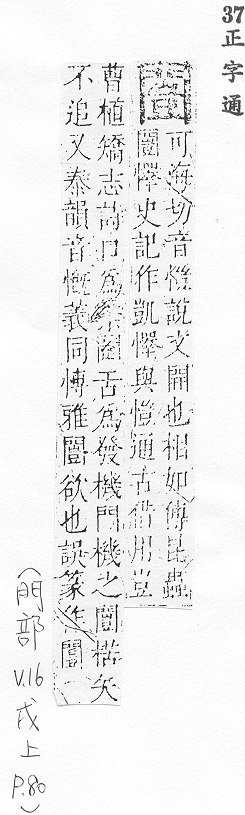 37正字通
闓
可海切音愷說文開也相如傳昆蟲
闓懌史記作凱懌與愷通古借用豈
曹植矯志詩口爲禁闥舌爲發機門機之闓楛矢
不追又泰韻音慨義同愽雅闓欲也誤篆作闓
(門部 V.16 戌上 P.80)